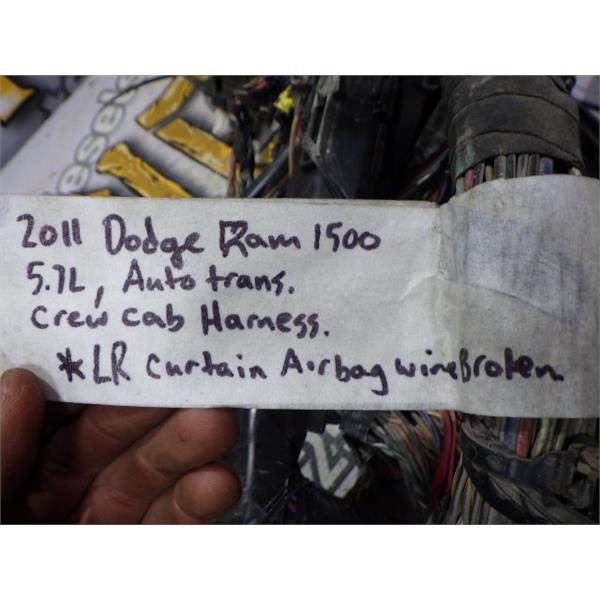 2011 Dodge Ram 1500
5.7L, Auto trans.
Crew cab Harness.
*LR Curtain Airbag wire Broken.